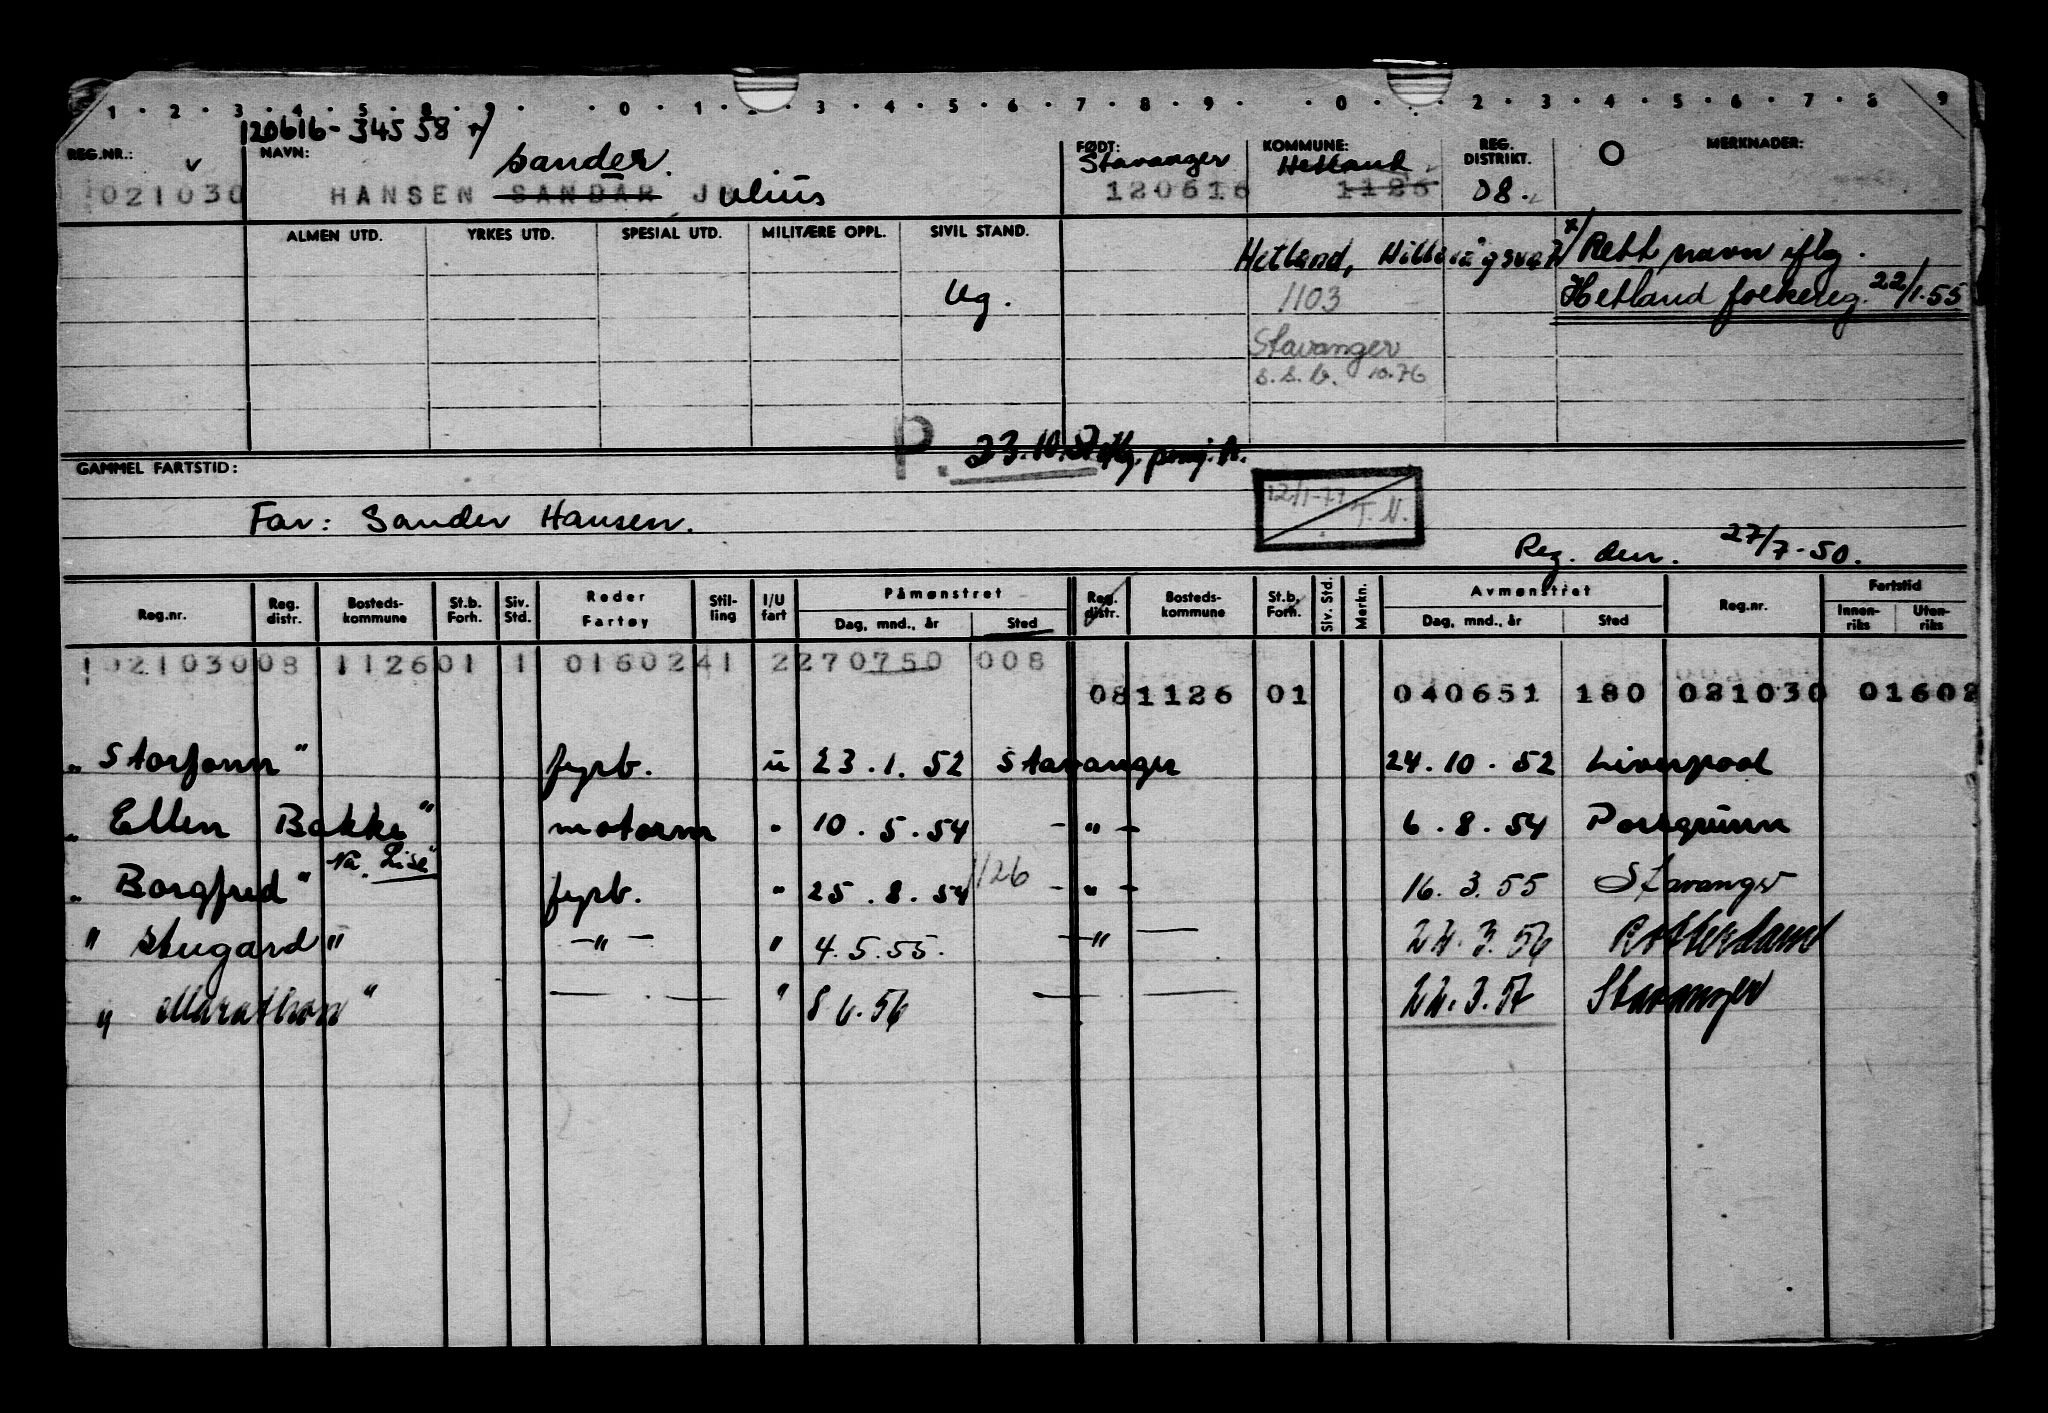 1 · 2 · 3 · 4 · 5 · 8 · 9 · · 0 · 1 · · 3 · 4 · 5 · 6 · 7 · 8 · 9 · · 0 · · 2 · 3 · 4 · 5 · 6 · 7 · 8 · 9
120616-34558 x/
REG.NR.: v NAVN: Sander. FØDT: Stavanger KOMMUNE: Hetland REG. DISTRIKT. O MERKNADER:
021030 HANSEN SANDAR Julius 120616 1126 08.
ALMEN UTD. YRKES UTD. SPESIAL UTD. MILITÆRE OPPL. SIVIL STAND.
Hetland, Hillevågsvat x/ Rett navn iflg.
Ug. 1103 Hetland folkereg. 22/1.55
Stavanger
s.s.b. 10.76
P. 23.10.
GAMMEL FARTSTID:
12/1-77 T.N.
Far: Sander Hansen.
Reg. den. 27/7-50.
Reg.nr. Reg. distr. Bosteds-kommune St.b. Forh. Siv. Std. Reder Fartøy Stil-ling I/U fart Påmønstret Dag, mnd., år Sted Reg. distr. Bosteds-kommune St.b. Forh. Siv. Std. Merkn. Avmønstret Dag, mnd., år Sted Reg.nr. Fartstid Innen-riks Uten-riks
02103008 112601 1 0160241 2270750 008
081126 01 040651 180 021030 01602
„Storfonn" fyrb. u 23.1.52 Stavanger 24.10.52 Liverpool
„Ellen Bakke" motorm " 10.5.54 - " - 6.8.54 Porsgrunn
Nå „Lise"
„Borgfred" fyrb. " 25.8.54 1126 - " - 16.3.55 Stavanger
" Stugard" - " - " 4.5.55. - " - 24.3.56 Rotterdam
„ Marathon" — — " 8.6.56 — — 22.3.57 Stavanger